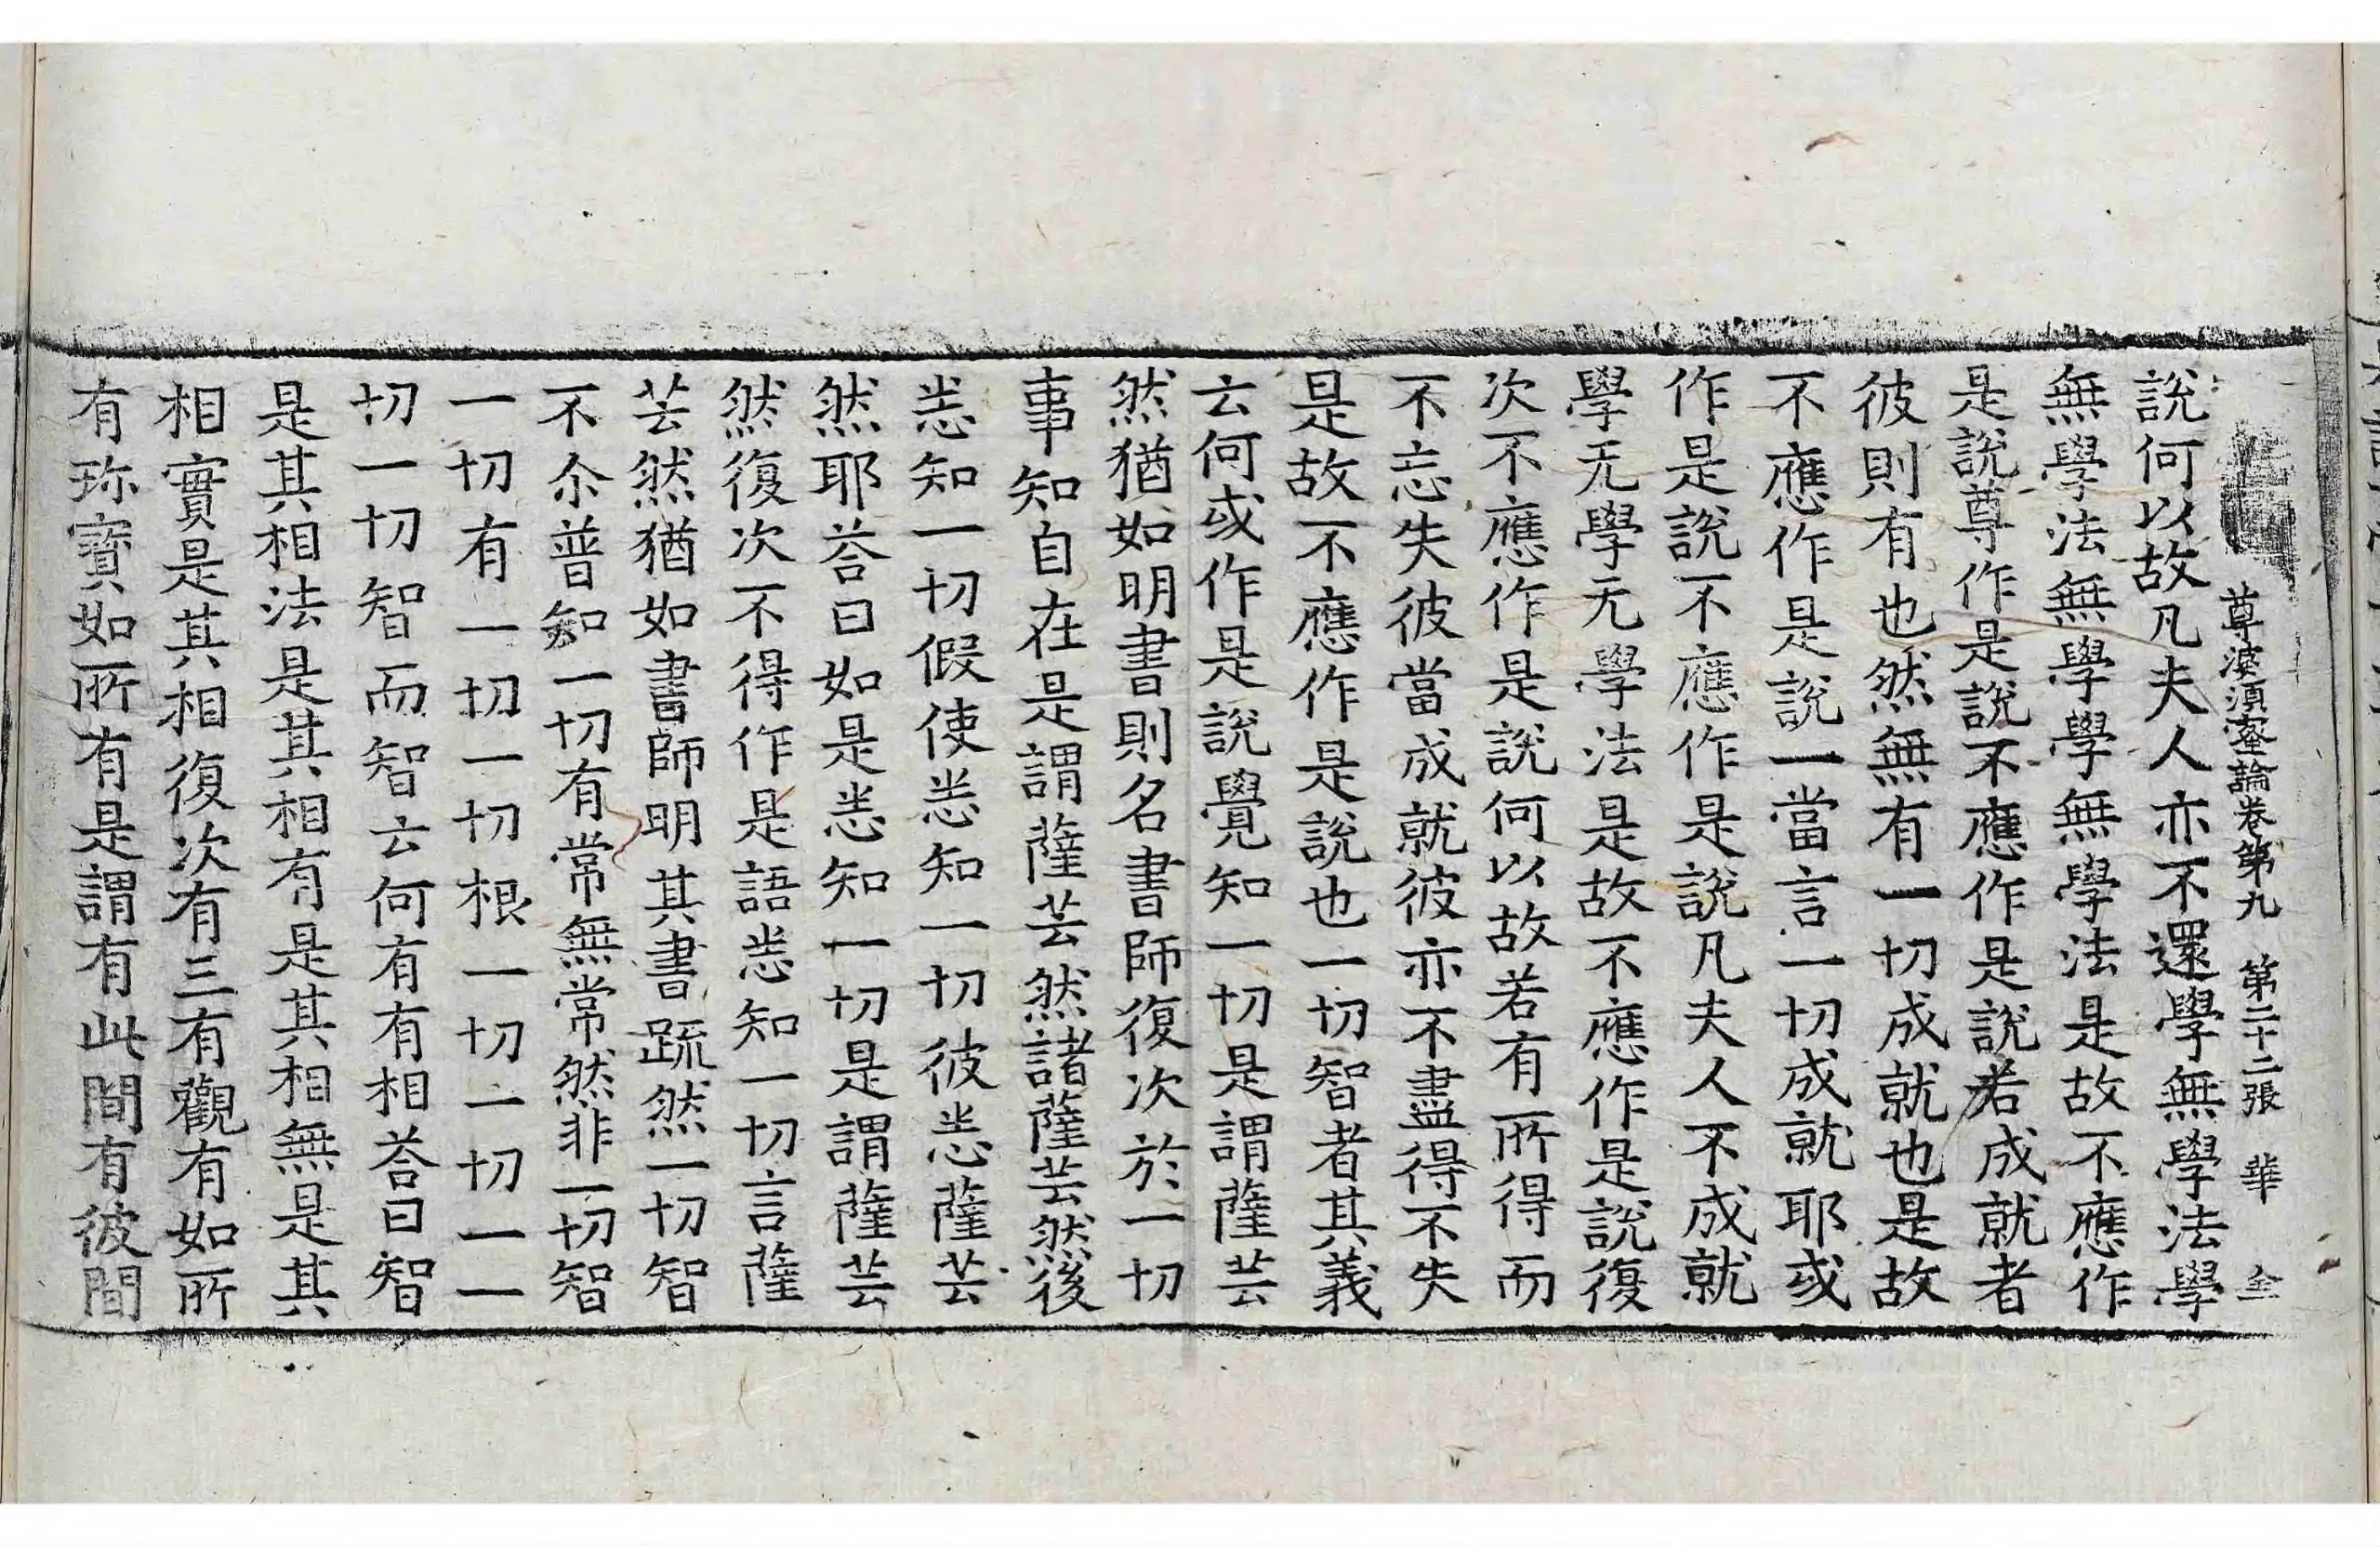 尊婆須蜜論卷第九 第二十二張 華 全
說何以故凡夫人亦不還學無學法學
無學法無學學無學法是故不應作
是說尊作是說不應作是說若成就者
彼則有也然無有一切成就也是故
不應作是說一當言一切成就耶或
作是說不應作是說凡夫人不成就
學无學无學法是故不應作是說復
次不應作是說何以故若有所得而
不忘失彼當成就彼亦不盡得不失
是故不應作是說也一切智者其義
云何或作是說覺知一切是謂薩芸
然猶如明書則名書師復次於一切
事知自在是謂薩芸然諸薩芸然後
悉知一切假使悉知一切彼悉薩芸
然耶荅曰如是悉知一切是謂薩芸
然復次不得作是語悉知一切言薩
芸然猶如書師明其書䟽然一切智
不尒普知一切有常無常然非一切智
一切有一切一切根一切一切一一
切一切智而智云何有有相荅曰智
是其相法是其相有是其相無是其
相實是其相復次有三有觀有如所
有珎寶如所有是謂有此間有彼間